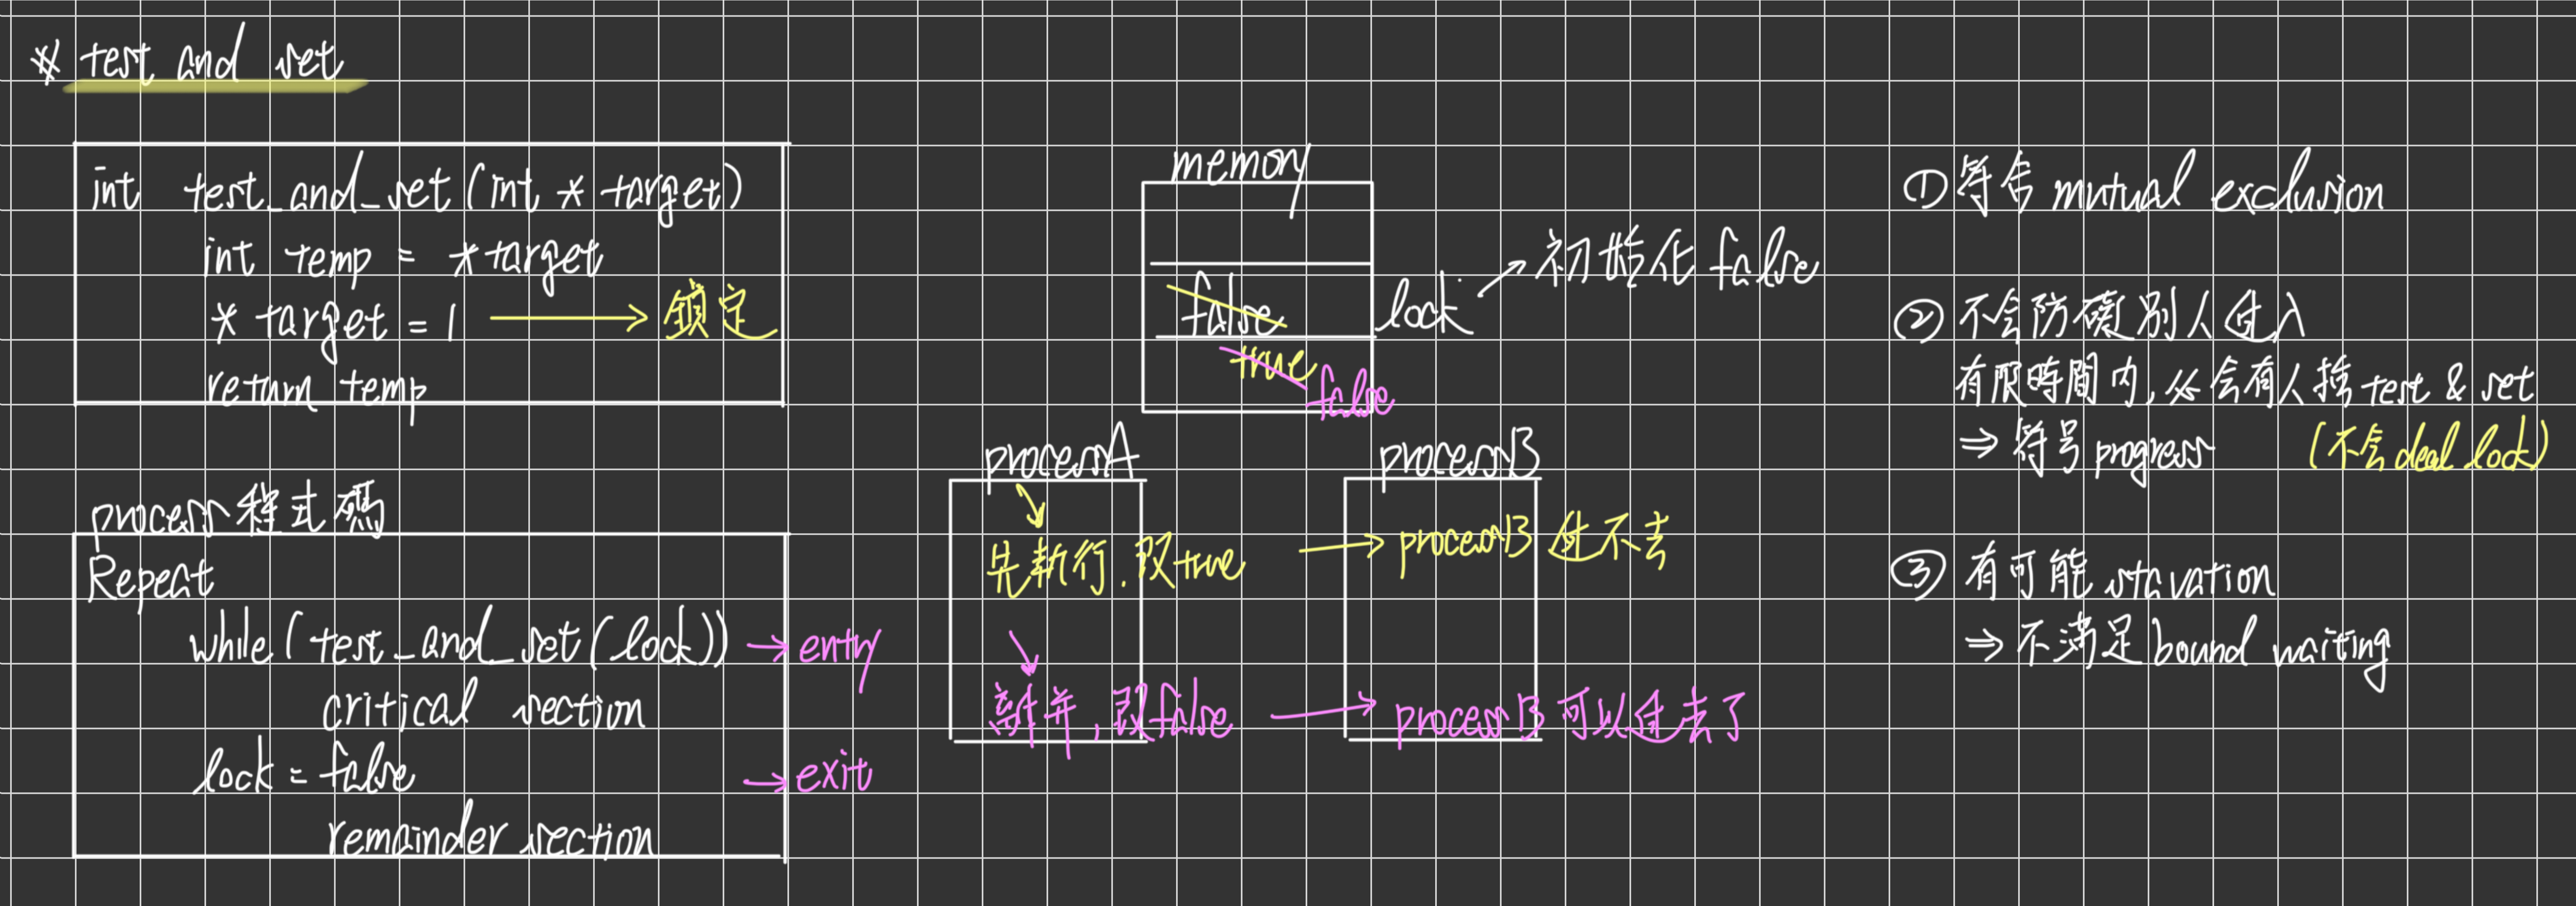 ※ test and set
int test_and_set(int * target)
int temp = *target
* target = 1 → 鎖定
return temp
process程式碼
Repeat
while(test_and_set(lock)) → entry
critical section
lock = false → exit
remainder section
memory
false lock → 初始化 false
true
false
processA processB
先執行, 設true → processB 進不去
離開, 設false → processB 可以進去了
① 符合 mutual exclusion
② 不会防礙別人進入
有限時間內, 必会有人搶 test & set
⇒ 符号 progress (不会deal lock)
③ 有可能 stavation
⇒ 不滿足 bound waiting